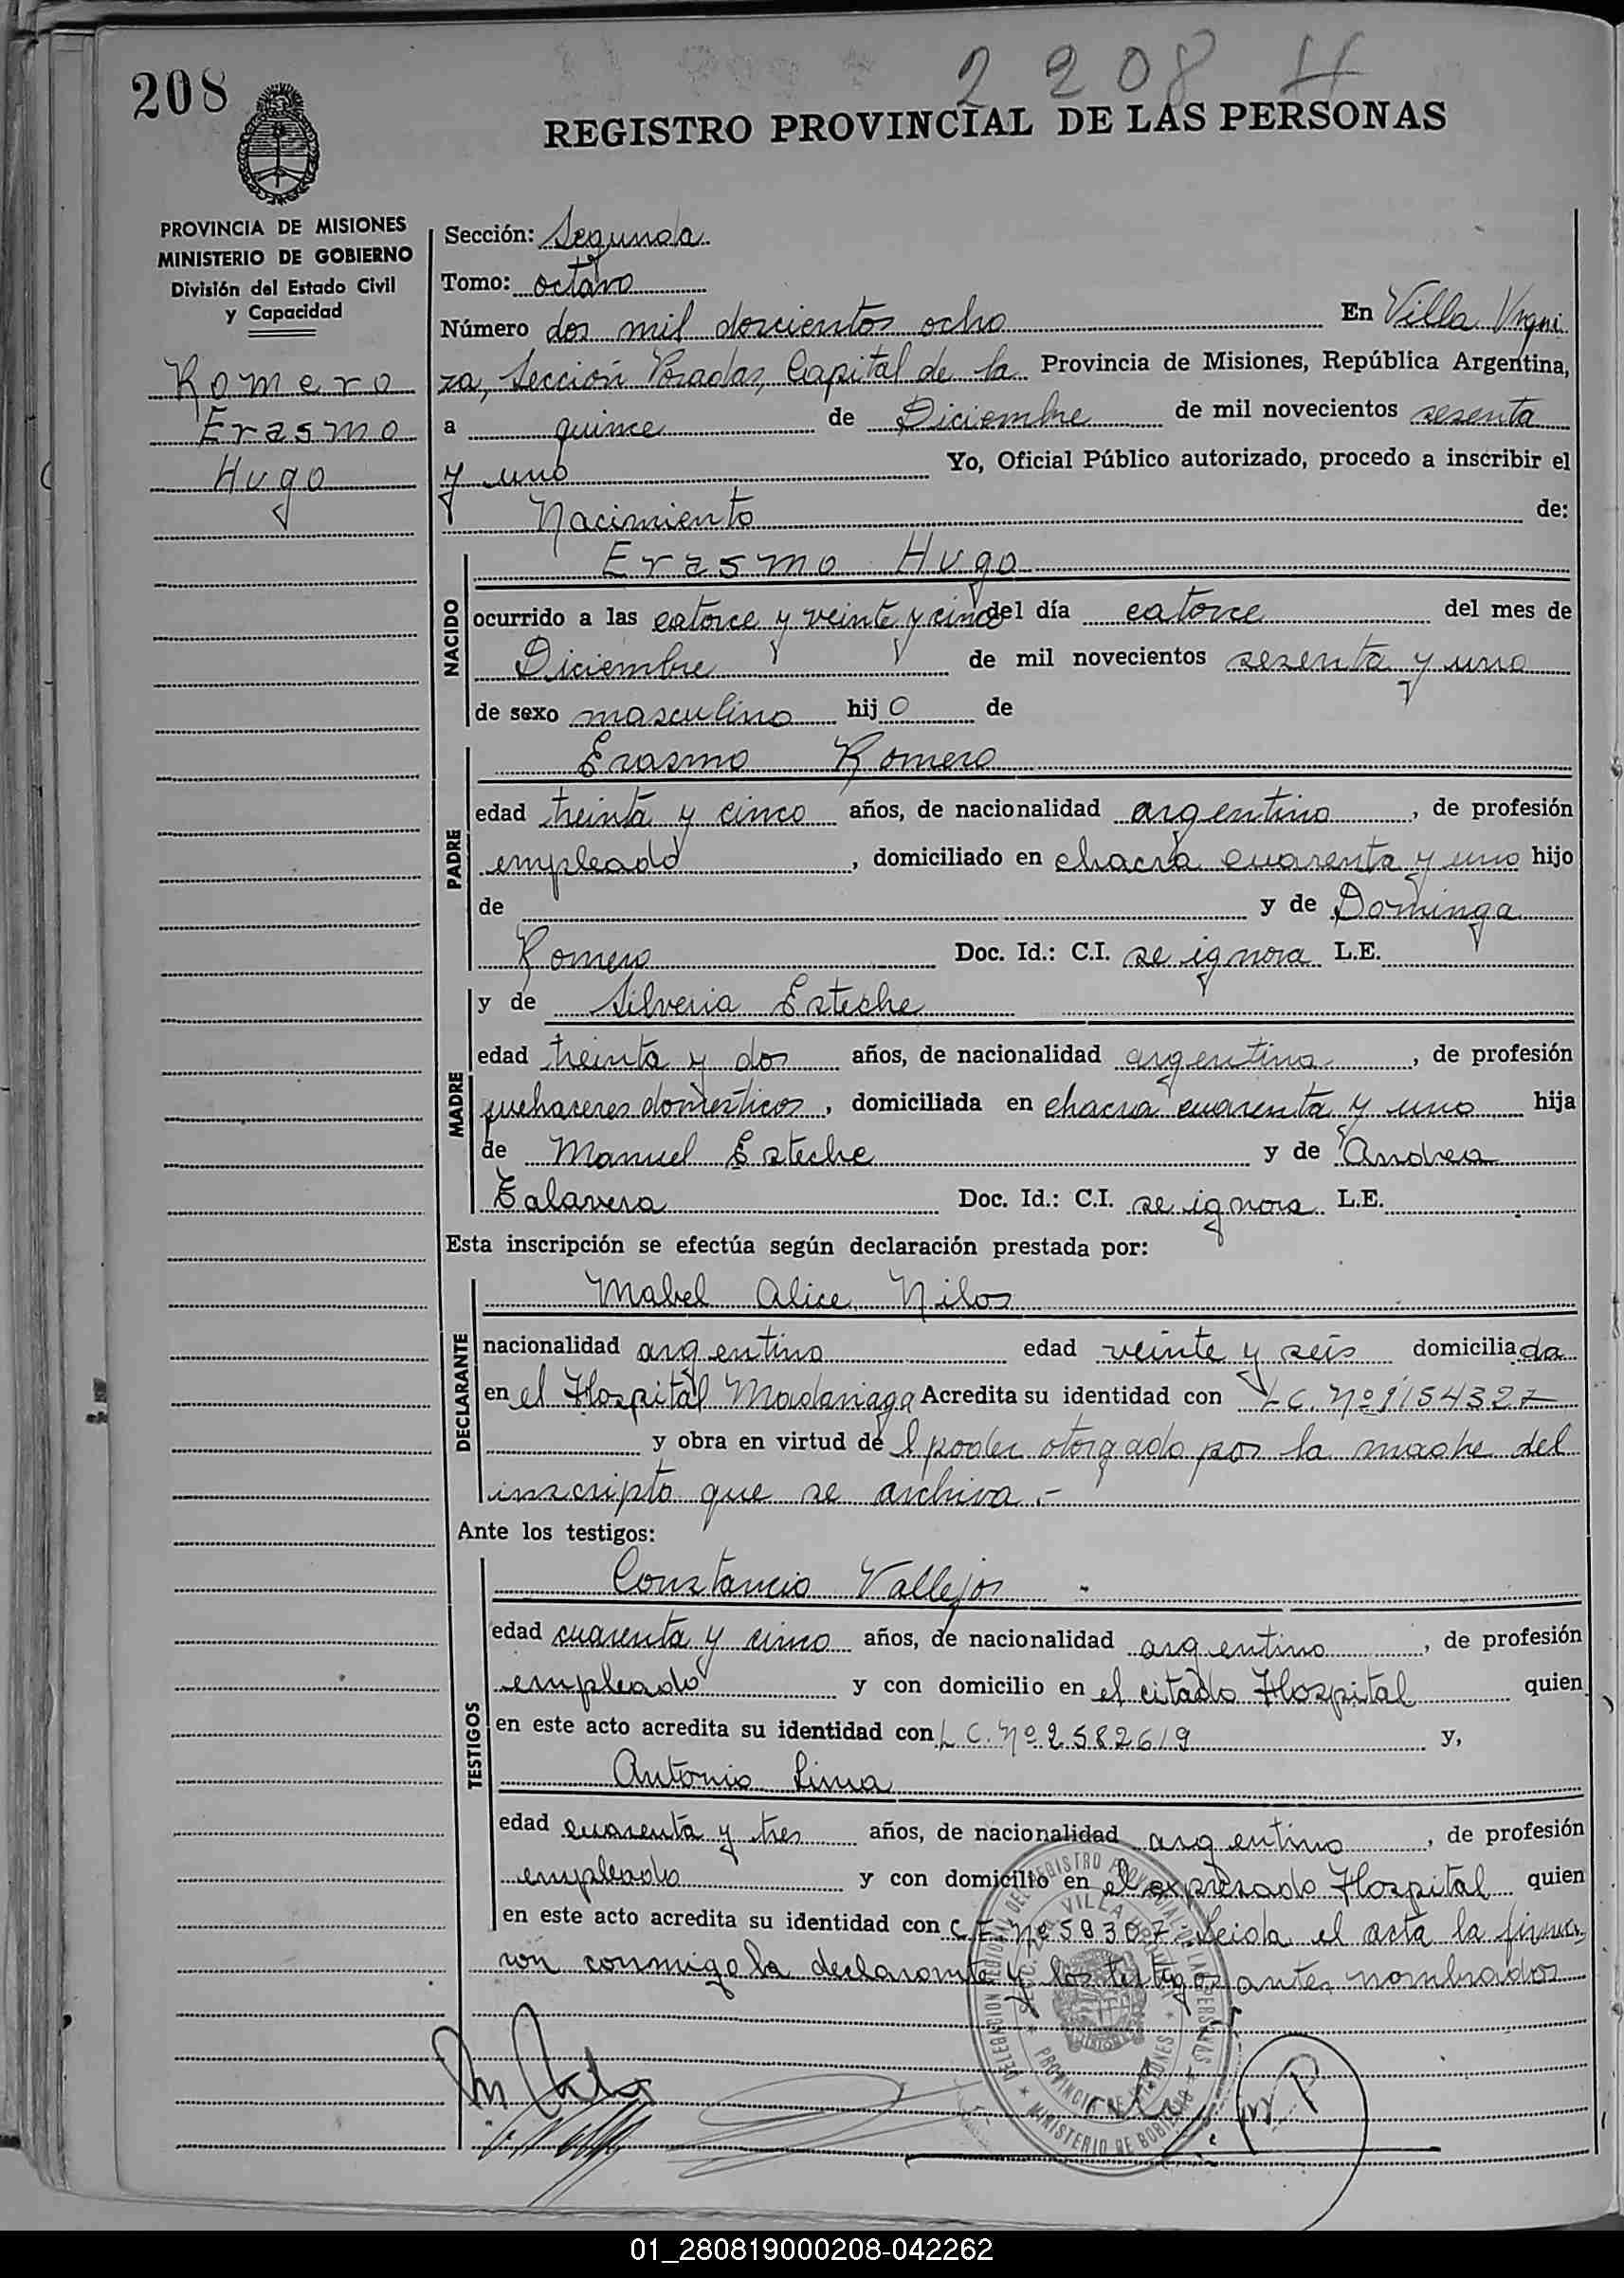 208
2 208 H
REGISTRO PROVINCIAL DE LAS PERSONAS
PROVINCIA DE MISIONES
MINISTERIO DE GOBIERNO
División del Estado Civil
y Capacidad
Romero
Erasmo
Hugo
Sección: Segunda
Tomo: octavo
Número dos mil doscientos ocho En Villa Urqui
za, Sección Posadas, Capital de la Provincia de Misiones, República Argentina,
a quince de Diciembre de mil novecientos sesenta
y uno Yo, Oficial Público autorizado, procedo a inscribir el
Nacimiento de:
NACIDO
Erasmo Hugo
ocurrido a las catorce y veinte y cinco del día catorce del mes de
Diciembre de mil novecientos sesenta y uno
de sexo masculino hijo de
PADRE
Erasmo Romero
edad treinta y cinco años, de nacionalidad argentino, de profesión
empleado, domiciliado en chacra cuarenta y uno hijo
de y de Dominga
Romero Doc. Id.: C.I. se ignora L.E.
MADRE
y de Silveria Esteche
edad treinta y dos años, de nacionalidad argentina, de profesión
quehaceres domesticos, domiciliada en chacra cuarenta y uno hija
de Manuel Esteche y de Andrea
Talavera Doc. Id.: C.I. se ignora L.E.
Esta inscripción se efectúa según declaración prestada por:
DECLARANTE
Mabel Alice Nilos
nacionalidad argentina edad veinte y seis domiciliada
en el Hospital Madariaga Acredita su identidad con L C. Nº 1154327
y obra en virtud del poder otorgado por la madre del
inscripto que se archiva.-
Ante los testigos:
TESTIGOS
Constancio Vallejos
edad cuarenta y cinco años, de nacionalidad argentino, de profesión
empleado y con domicilio en el citado Hospital quien
en este acto acredita su identidad con L C. Nº 2582619 y,
Antonio Lima
edad cuarenta y tres años, de nacionalidad argentino, de profesión
empleado y con domicilio en el expresado Hospital quien
en este acto acredita su identidad con C I. Nº 59307. Leida el acta la firma
ron conmigo la declarante y los testigos antes nombrados
PROVINCIA DE MISIONES
MINISTERIO DE GOBIERNO
01_280819000208-042262